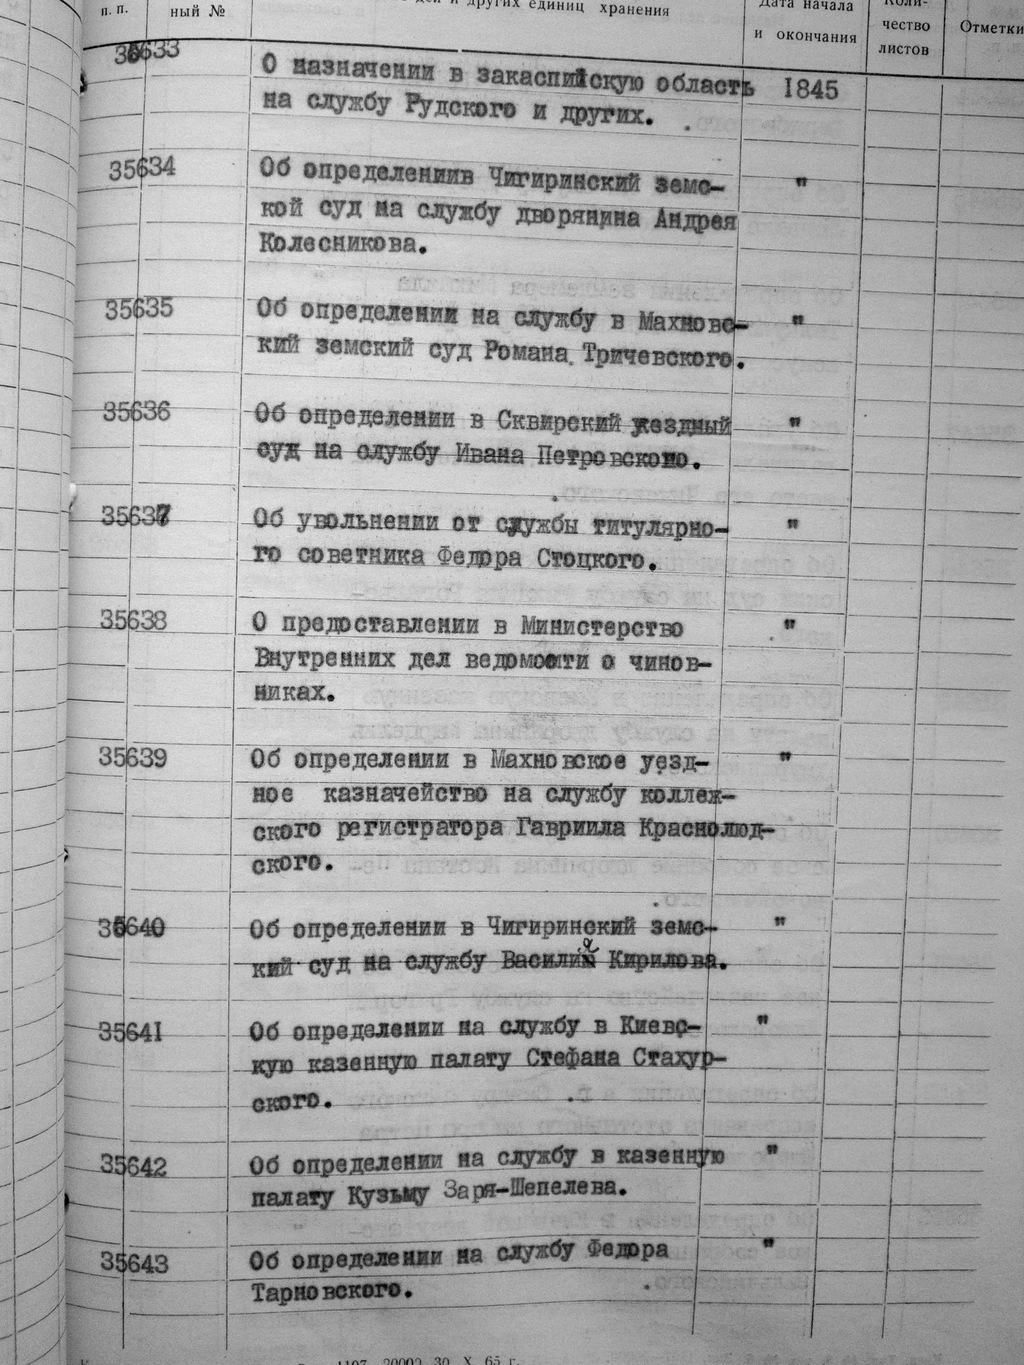 п. п.
ный №
дел и других единиц хранения
Дата начала
и окончания
Коли-
чество
листов
Отметки
35633
О назначении в закаспийскую область 1845
на службу Рудского и других.
35634
Об определениив Чигиринский земс- "
кой суд на службу дворянина Андрея
Колесникова.
35635
Об определении на службу в Махновс- "
кий земский суд Романа Тричевского.
35636
Об определении в Сквирский уездный "
суд на службу Ивана Петровского.
35637
Об увольнении от службы титулярно- "
го советника Федора Стоцкого.
35638
О предоставлении в Министерство "
Внутренних дел ведомости о чинов-
никах.
35639
Об определении в Махновское уезд- "
ное казначейство на службу коллеж-
ского регистратора Гавриила Краснолюд-
ского.
35640
Об определении в Чигиринский земс- "
кий суд на службу Василия Кирилова.
35641
Об определении на службу в Киевс- "
кую казенную палату Стефана Стахур-
ского.
35642
Об определении на службу в казенную "
палату Кузьму Заря-Шепелева.
35643
Об определении на службу Федора "
Тарновского.
1107 20000 30 X 65 г.